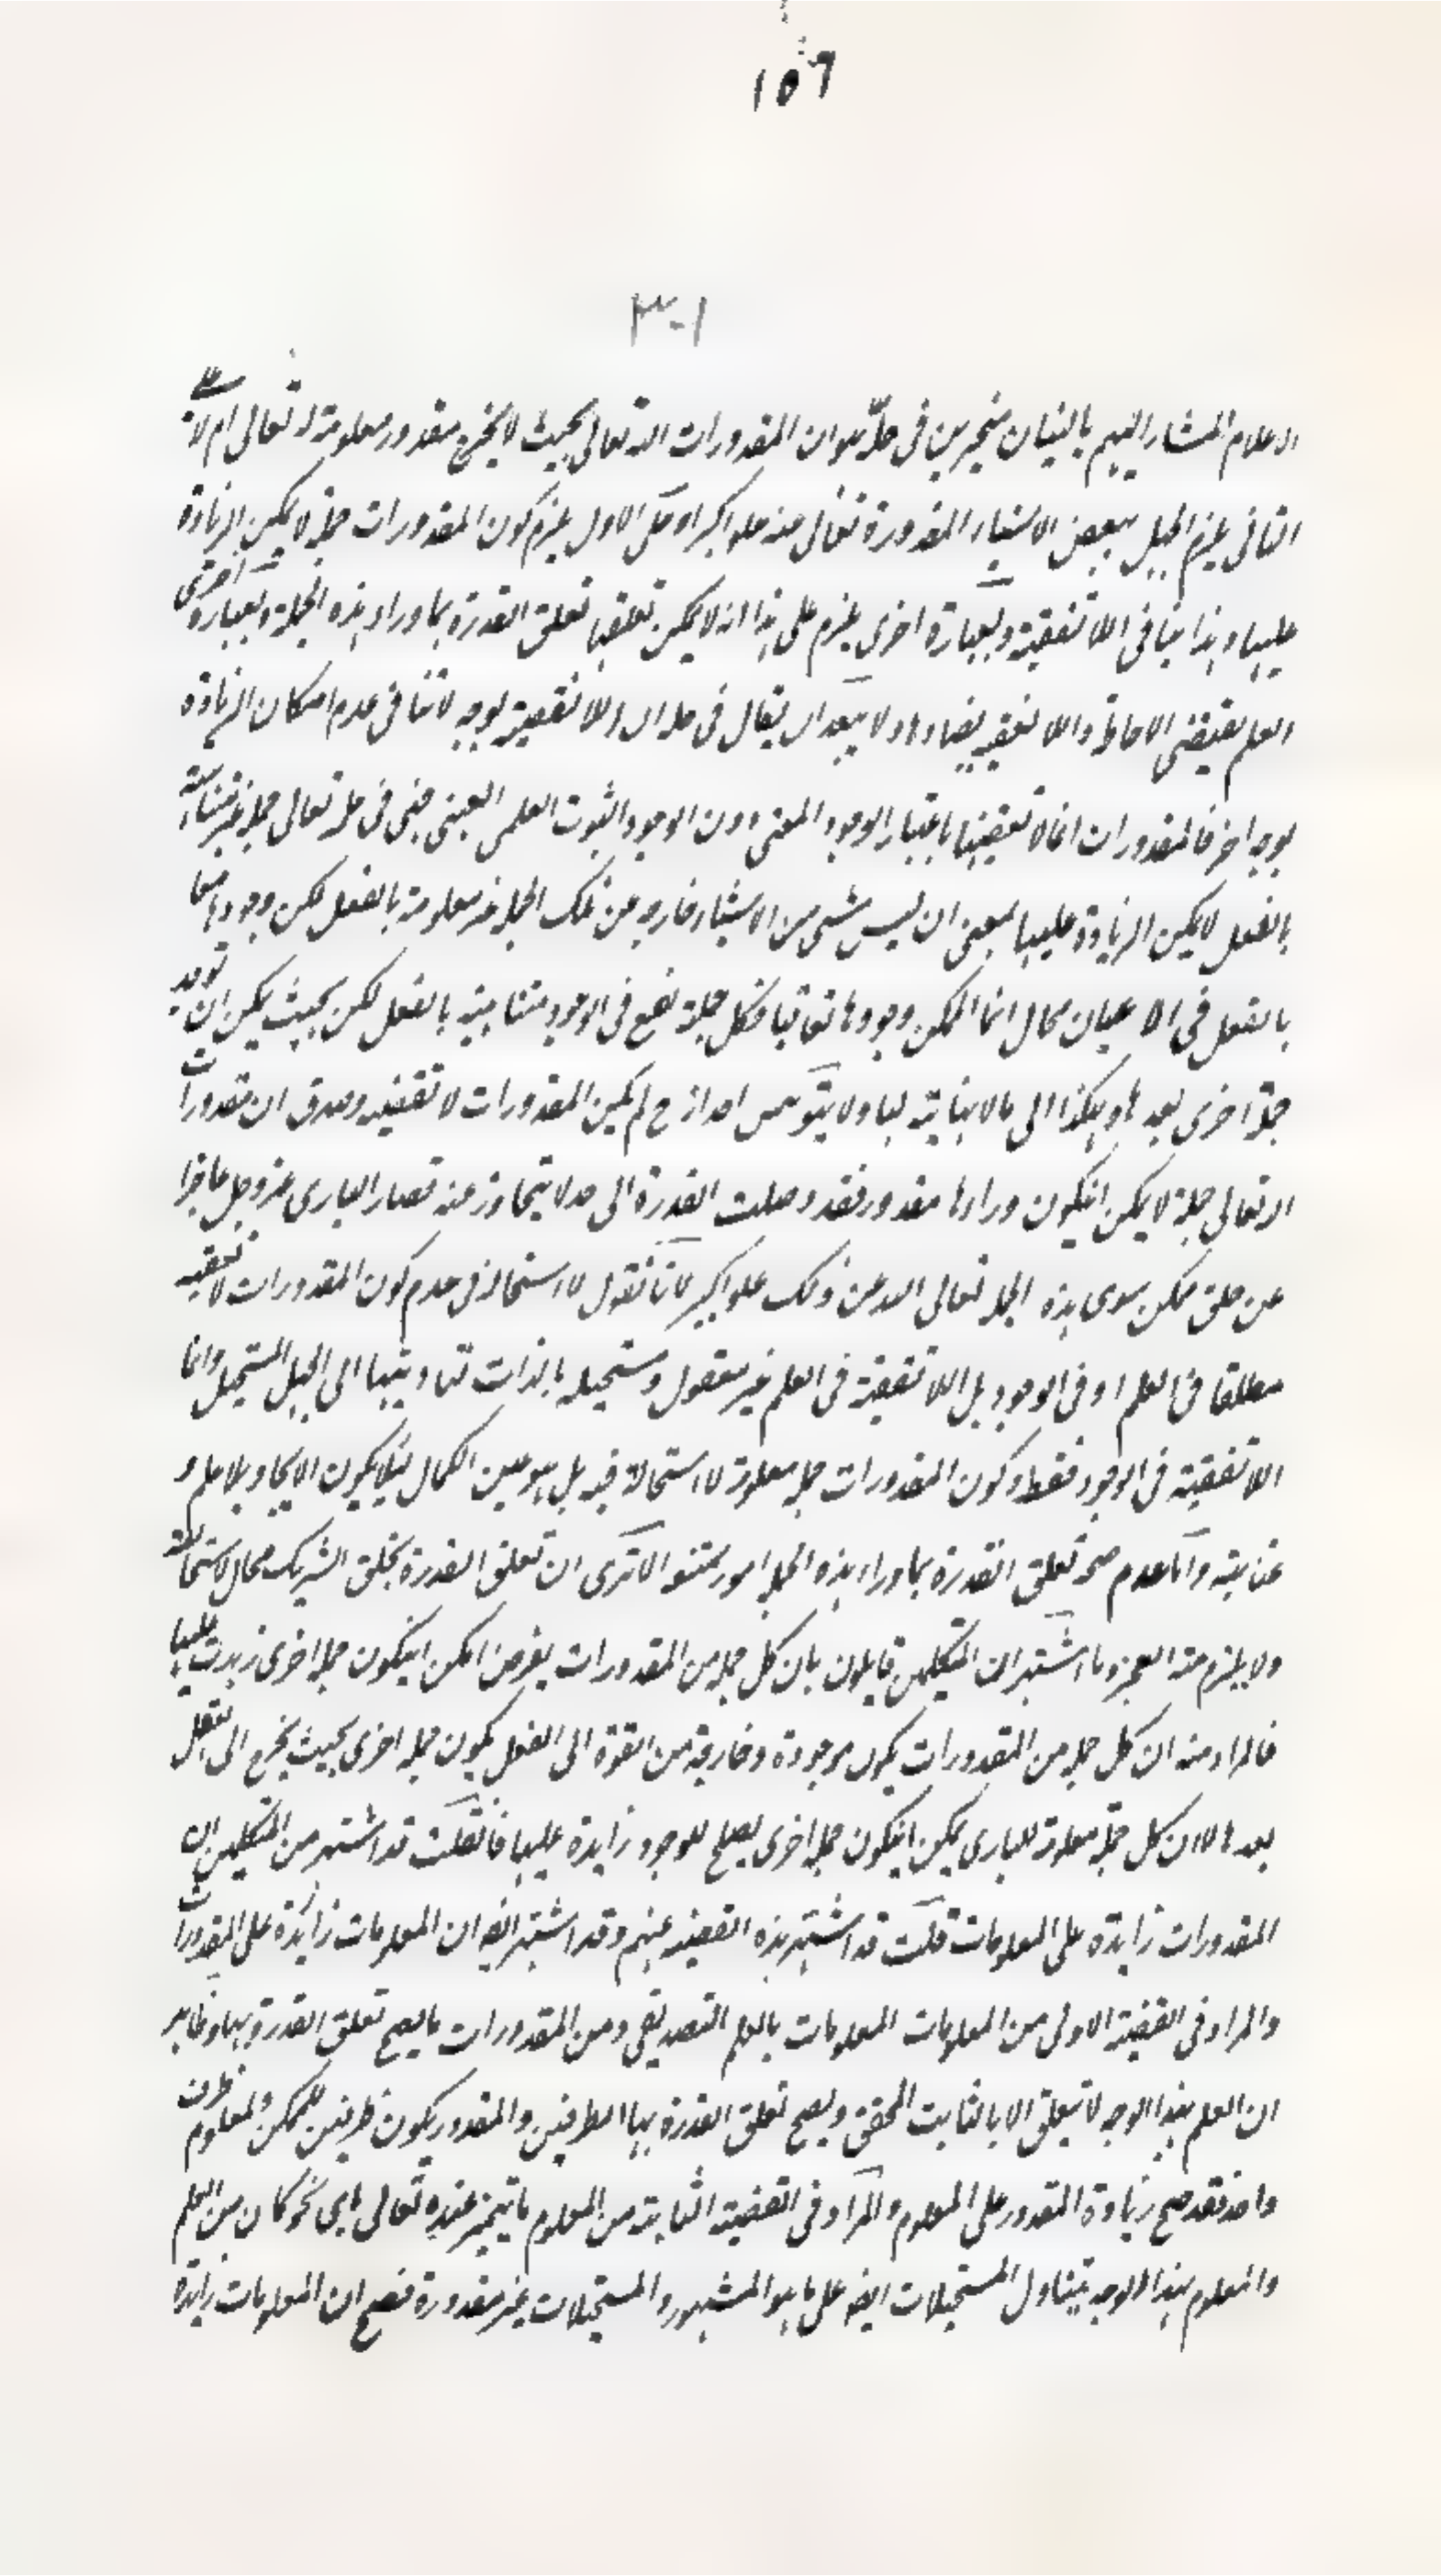 ١٥٦
٣٠١
الاعلام المشار اليهم بالبنيان متحيرين فى حله هو ان المقدورات الله تعالى بحيث لا يخرج مقدور معلومة له تعالى ام لا على
الثانى يلزم الجهل ببعض الاشياء المقدورة تعالى عنه علوا كبيرا وعلى الاول يلزم كون المقدورات جملة لا يمكن الزيادة
عليها وهذا ينافى اللاتقفية وبعبارة اخرى يلزم على هذا انه لا يمكن تعلق القدرة بما وراء هذه الجملة وبعبارة اخرى
العلم يقتضى الاحاطة واللاتقفية يضادها ولا يبعد ان يقال فى حله ان اللاتقفية بوجه لا تنافى عدم امكان الزيادة
بوجه اخر فالمقدورات انما لا تقفيتها باعتبار الوجود العينى دون الوجود الثبوت العلمى فهى فى علمه تعالى جملة غير متناهية
بالفعل لا يمكن الزيادة عليها بمعنى ان ليس شى من الاشياء خارجه عن تلك الجملة غير معلومة بالفعل لكن وجودها معا
بالفعل فى الاعيان محال انما الممكن وجودها تعاقبا فكل جملة تقع فى الوجود متناهية بالفعل لكن بحيث يمكن ان توجد
جملة اخرى بعدها وهكذا الى ما لا نهاية لها ولا يتوهمن احد انه ح لم يكن المقدورات لا تقفية وصدق ان مقدورات
الله تعالى جملة لا يمكن ان يكون وراءها مقدور فقد وصلت القدرة الى حد لا يتجاوز عنه فصار البارى عز وجل عاجزا
عن خلق ممكن سوى هذه الجملة تعالى الله عن ذلك علوا كبيرا لانا نقول لا استحالة فى عدم كون المقدورات لا تقفية
مطلقا فى العلم او فى الوجود بل اللاتقفية فى العلم غير معقول ومستحيله بالذات لتاديتها الى الجهل المستحيل وانما
اللاتقفية فى الوجود فقط وكون المقدورات جملة معلومة لا استحالة فيه بل هو عين الكمال لئلا يكون الايجاد بلا علم و
عناية واما عدم صحة تعلق القدرة بما وراء هذه الجملة امور ممتنعة الا ترى ان تعلق القدرة بخلق الشريك محال لاستحالته
ولا يلزم منه العجز وما اشتهر ان المتكلمين قايلون بان كل جملة من المقدورات يفرض امكن ان يكون جملة اخرى زيدت عليها
فالمراد منه ان كل جملة من المقدورات يكون موجودة وخارجة من القوة الى الفعل يكون جملة اخرى بحيث يخرج الى الفعل
بعدها لا ان كل جملة معلومة للبارى يمكن ان يكون جملة اخرى يصلح للوجود زايدة عليها فان قلت قد اشتهر من المتكلمين ان
المقدورات زايدة على المعلومات قلت قد اشتهر هذه القضية عنهم وقد اشتهر ايضا ان المعلومات زايدة على المقدورات
والمراد فى القضية الاولى من المعلومات المعلومات بالعلم التصديقى ومن المقدورات ما يصح تعلق القدرة بها وظاهر
ان العلم بهذا الوجه لا يتعلق الا بالثابت المحقق ويصح تعلق القدرة بها الطرفين والمقدور يكون طرفين للممكن والمعلوم طرف
واحد فقد صح زيادة المقدور على المعلوم والمراد فى القضية الثانية من المعلوم ما يتميز عنده تعالى باى نحو كان من العلم
والمعلوم بهذا الوجه يتناول المستحيلات ايضا على ما هو المشهور والمستحيلات غير مقدورة فصح ان المعلومات زايدة